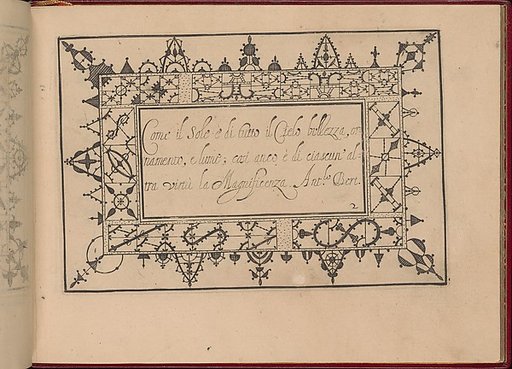 Come il Sole è di tutto il Cielo bellezza, or
namento, e lume; così anco è di ciascun' al
tra virtù la Magnificenza. Ant.lo Bert.
2